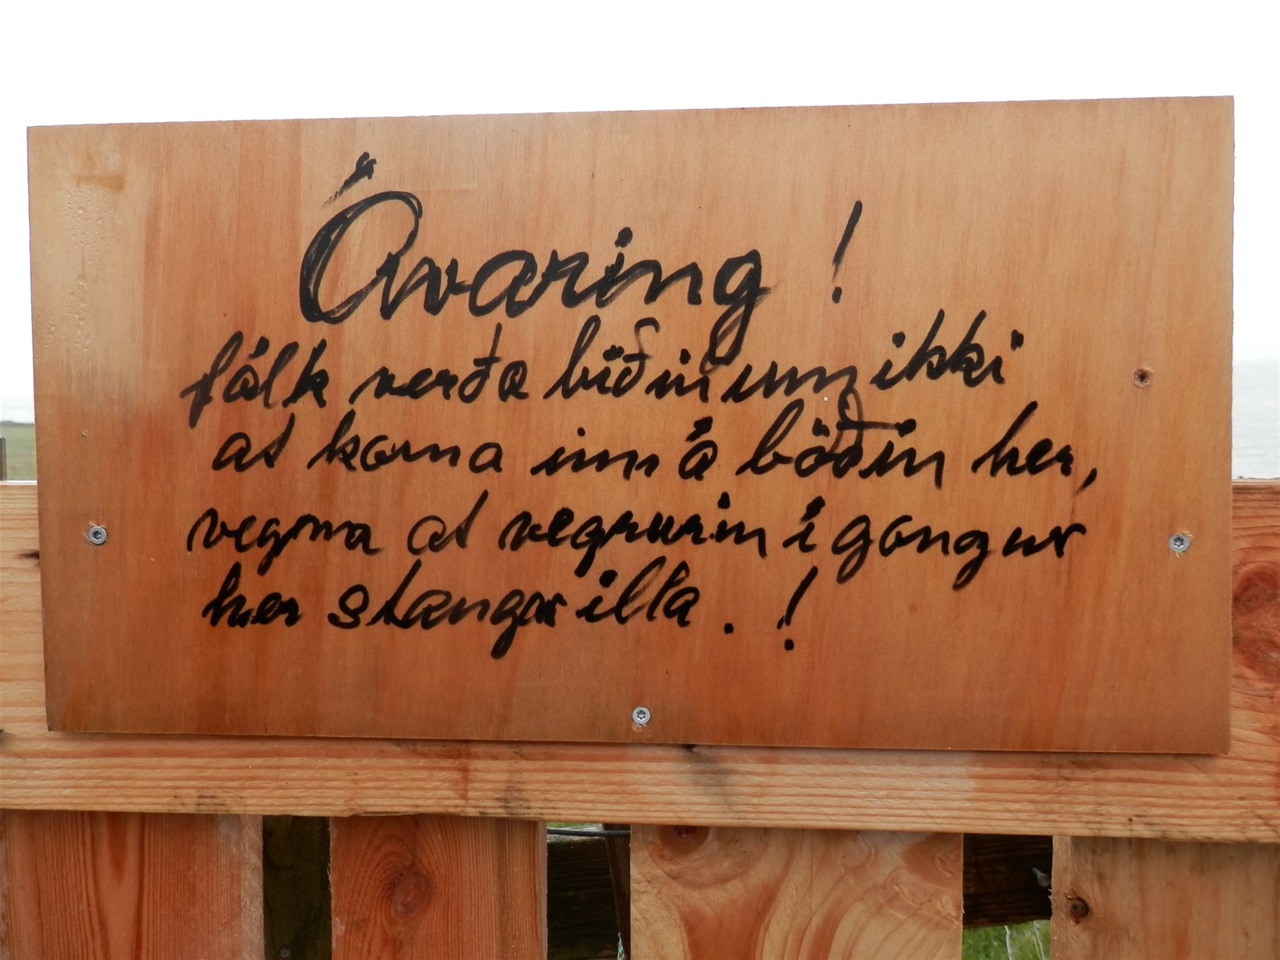 Ávaring!
fólk verða biðin um ikki
at koma inn á bøðin her,
vegna at vegurin í gongur
her stangar illa.!